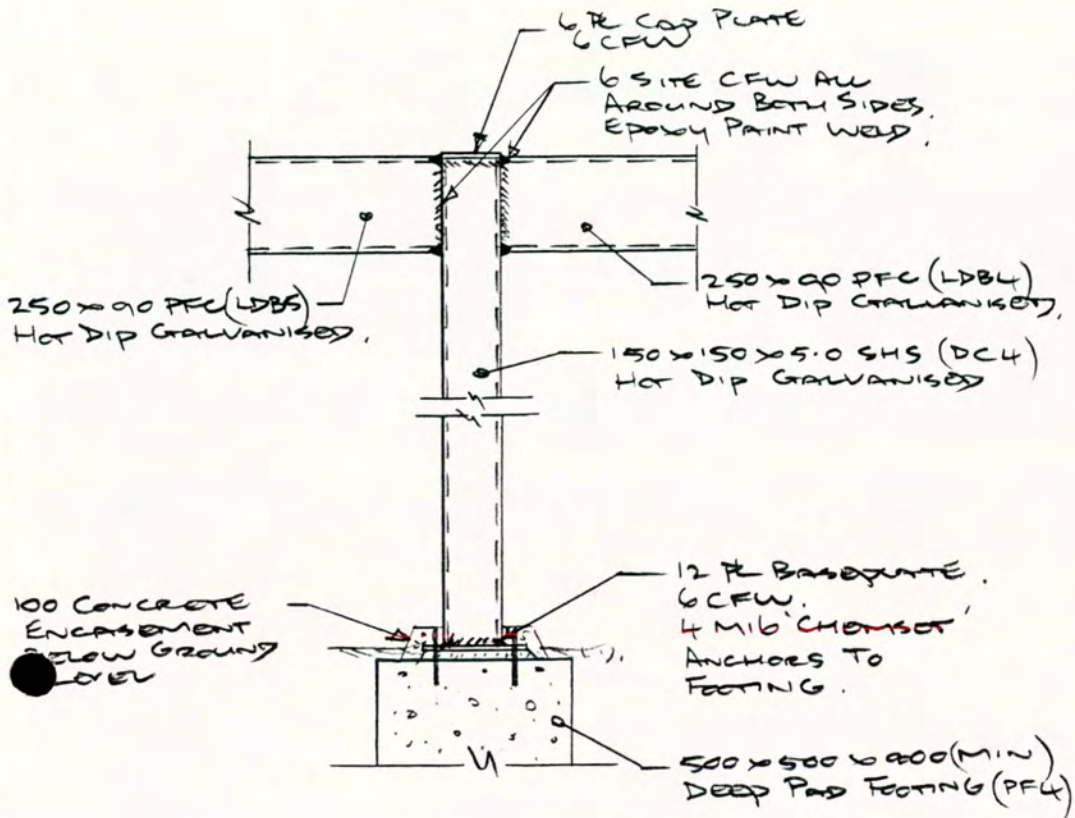 6 PL CAP PLATE
6 CFW
6 SITE CFW ALL
AROUND BOTH SIDES.
EPOXY PAINT WELD.
250 x 90 PFC (LDB5)
HOT DIP GALVANISED.
250 x 90 PFC (LDB4)
HOT DIP GALVANISED.
150 x 150 x 5.0 SHS (DC4)
HOT DIP GALVANISED
100 CONCRETE
ENCASEMENT
BELOW GROUND
LEVEL
12 PL BASEPLATE.
6 CFW.
4 M16 CHEMSET
ANCHORS TO
FOOTING.
500 x 500 x 900 (MIN)
DEEP PAD FOOTING (PF4)